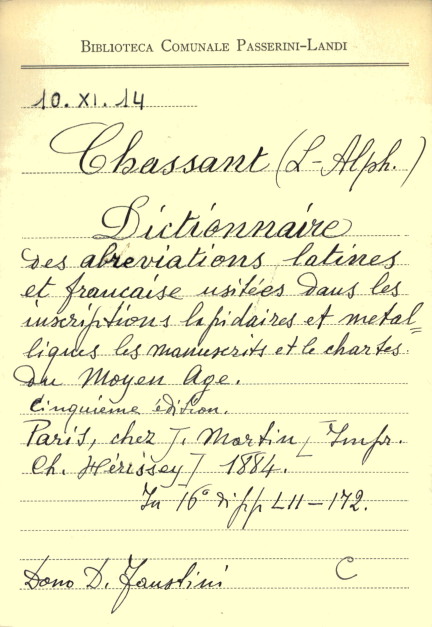 BIBLIOTECA COMUNALE PASSERINI-LANDI
10. XI. 14
Chassant (L-Alph.)
Dictionnaire
des abreviations latines
et francaise usitées dans les
inscriptions lapidaires et metal=
liques les manuscrits et le chartes
du Moyen Age.
Cinquième édition.
Paris, chez J. Martin [Impr.
Ch. Hérissey] 1884.
In 16° di pp LII-172.
Dono D. Faustini C